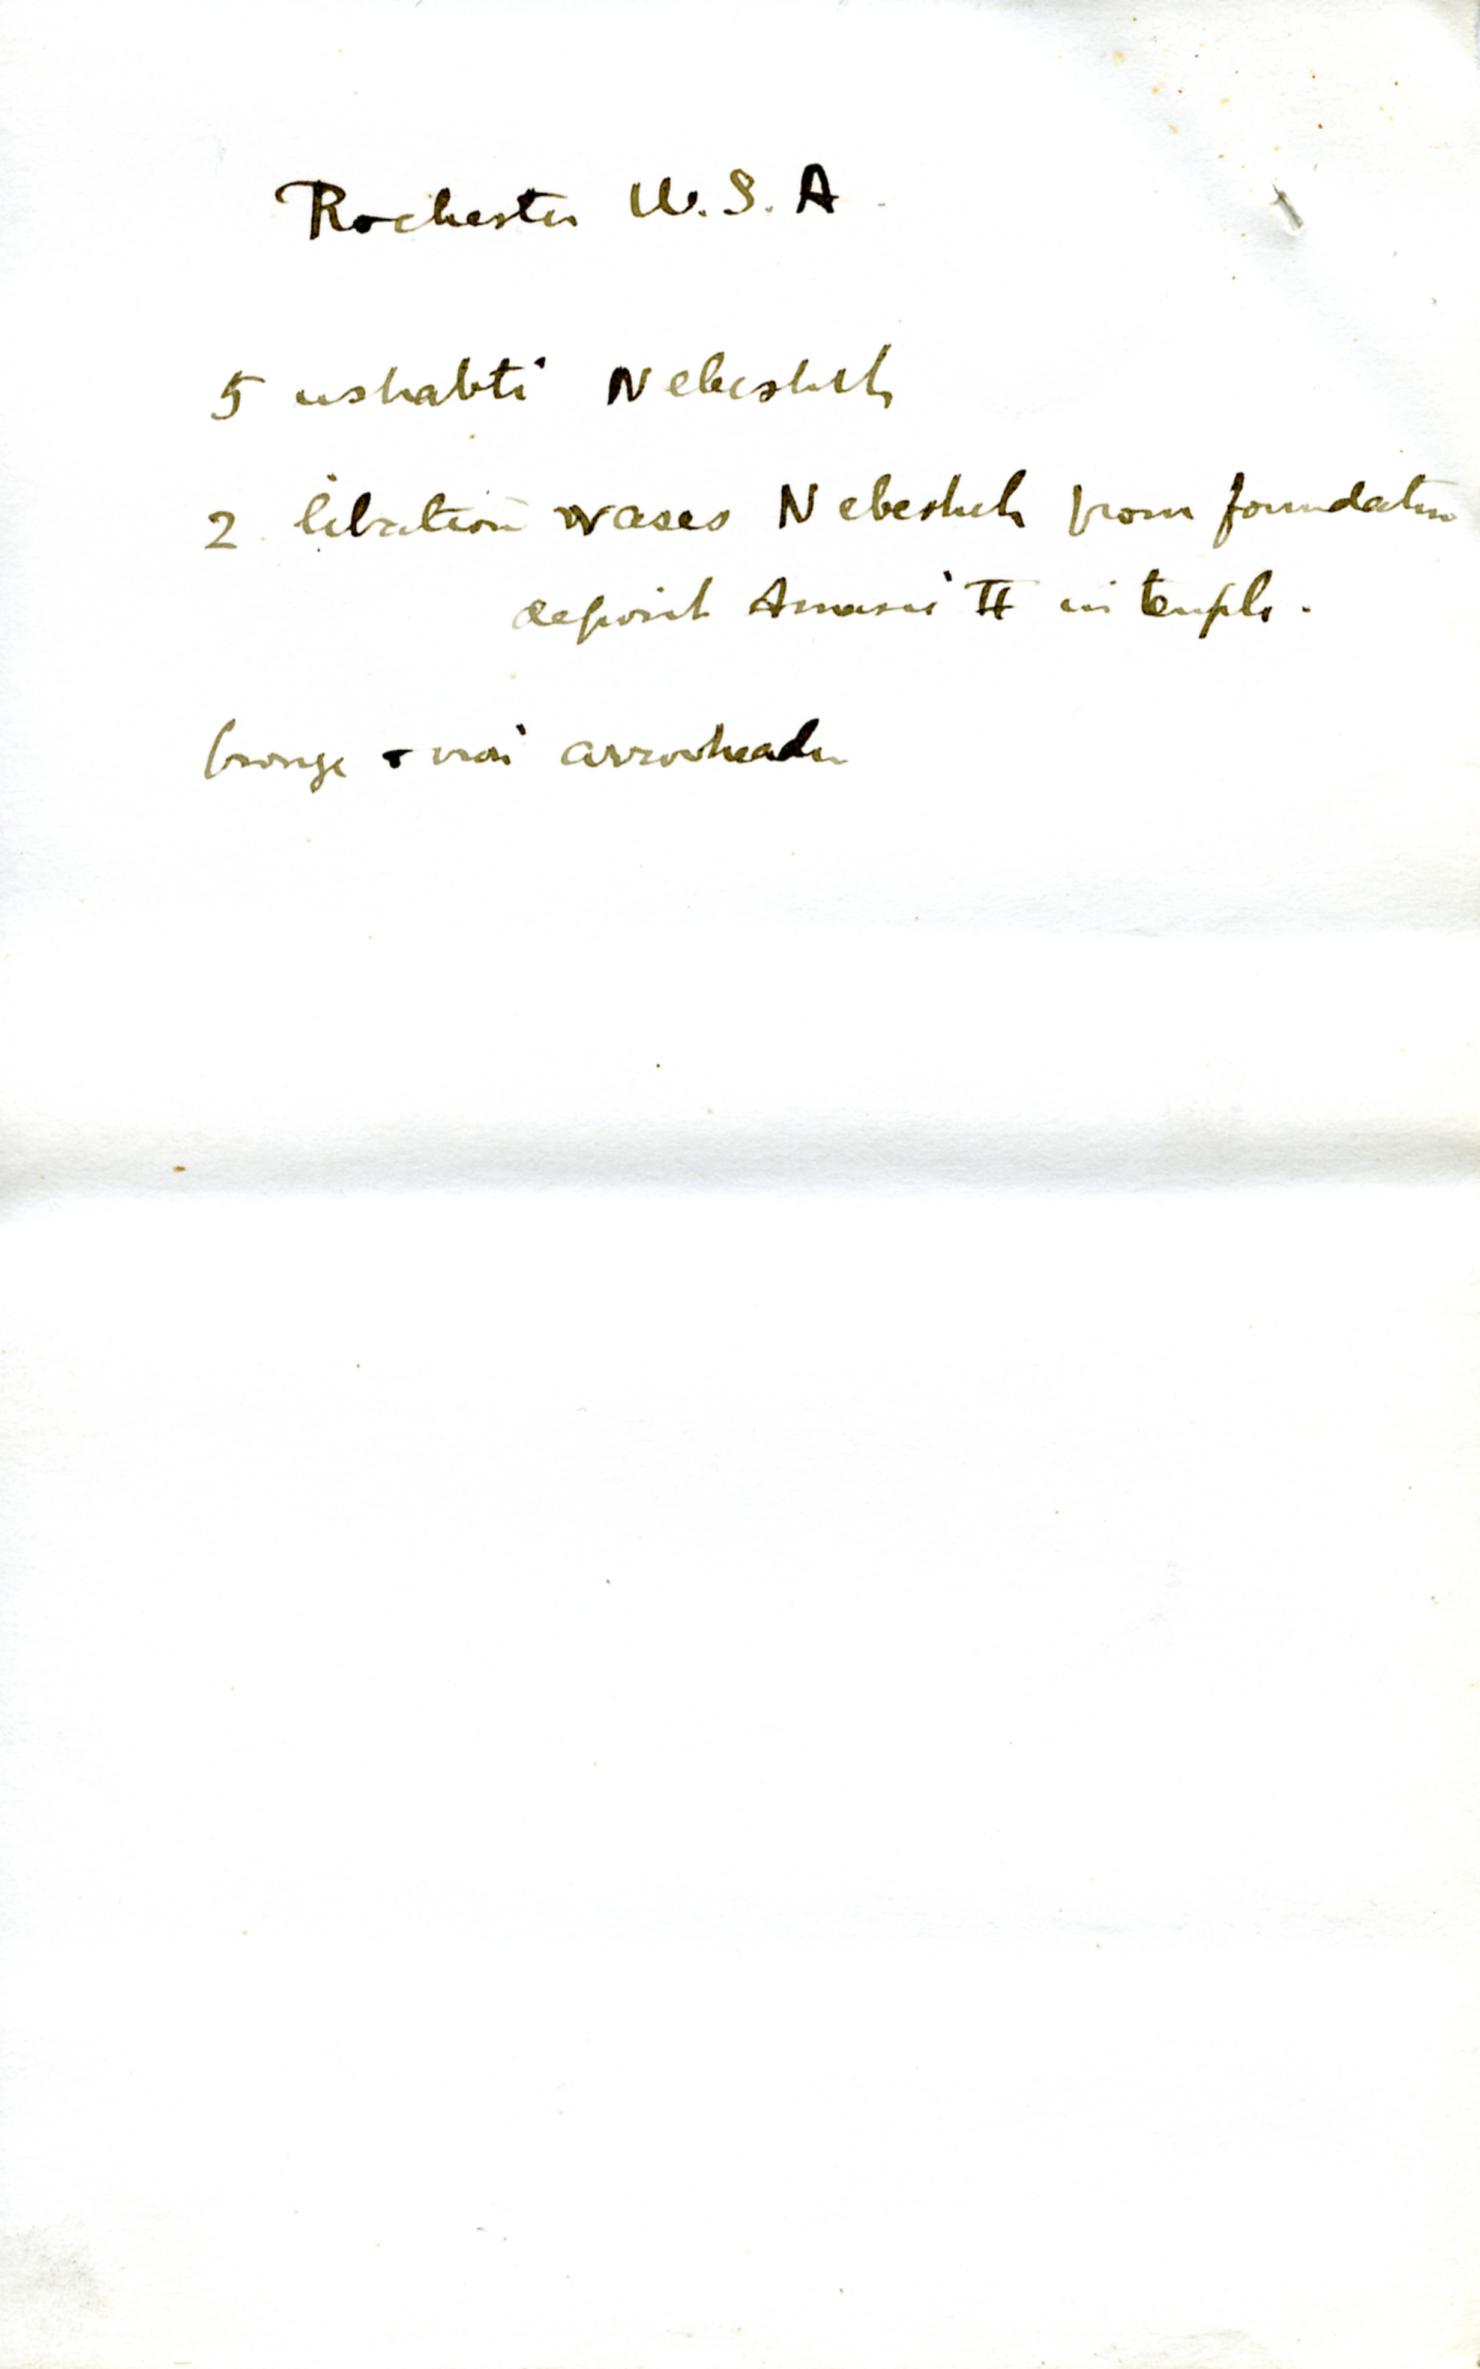 Rochester U.S.A
5 ushabti Nebesheh
2 libation vases Nebesheh from foundation
deposit Amasis II in temple.
bronze + iron arrowheads